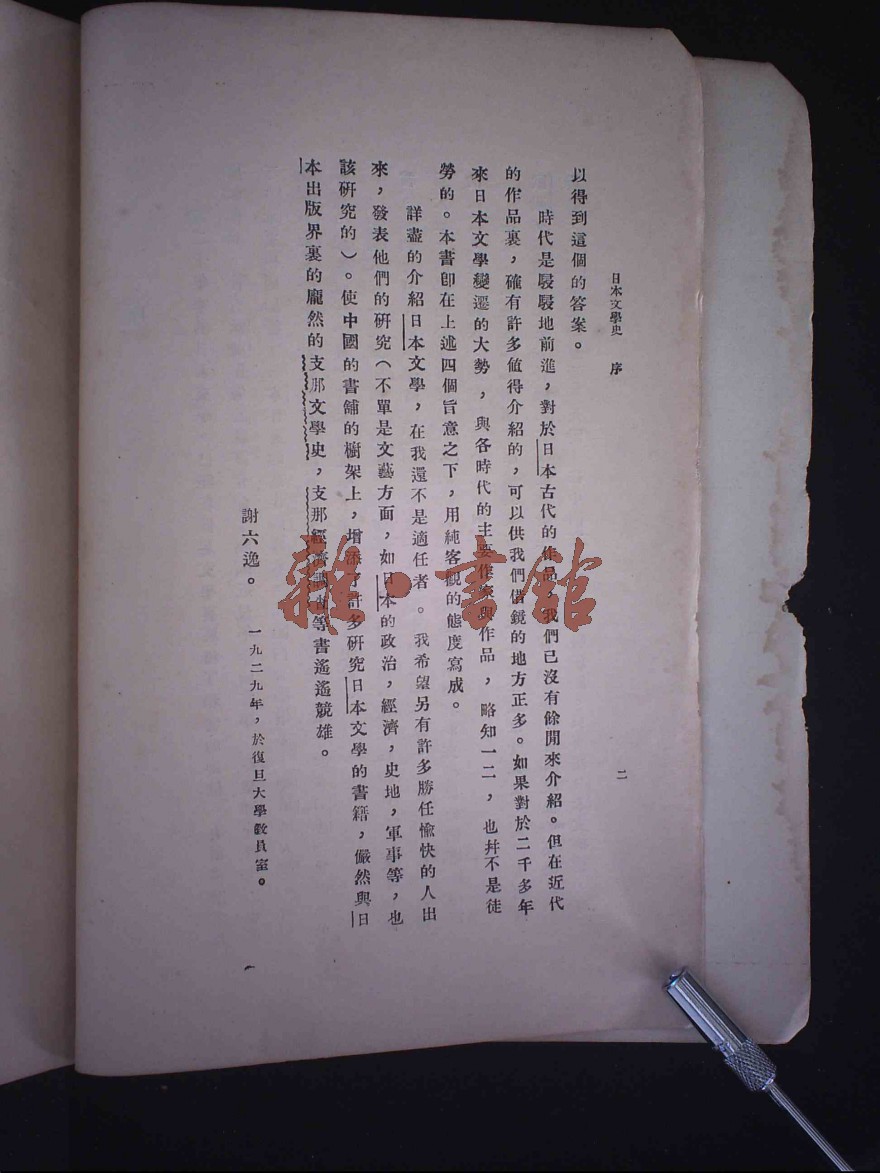 日本文學史 序
二
以得到這個的答案。
時代是駸駸地前進，對於日本古代的作品，我們已沒有餘閒來介紹。但在近代
的作品裏，確有許多値得介紹的，可以供我們借鏡的地方正多。如果對於二千多年
來日本文學變遷的大勢，與各時代的主要作家與作品，略知一二，也幷不是徒
勞的。本書卽在上述四個旨意之下，用純客觀的態度寫成。
詳盡的介紹日本文學，在我還不是適任者。我希望另有許多勝任愉快的人出
來，發表他們的硏究（不單是文藝方面，如日本的政治，經濟，史地，軍事等，也
該硏究的）。使中國的書舖的櫥架上，增添了許多硏究日本文學的書籍，儼然與日
本出版界裏的龐然的支那文學史，支那經濟等書遙遙競雄。
謝六逸。
一九二九年，於復旦大學敎員室。
雜·書館